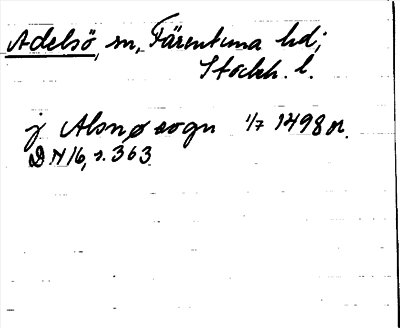 Adelsö, sn, Färentuna hd;
Stockh. l.
j Alsnø sogn 1/7 1498 n.
DN 16, s. 363